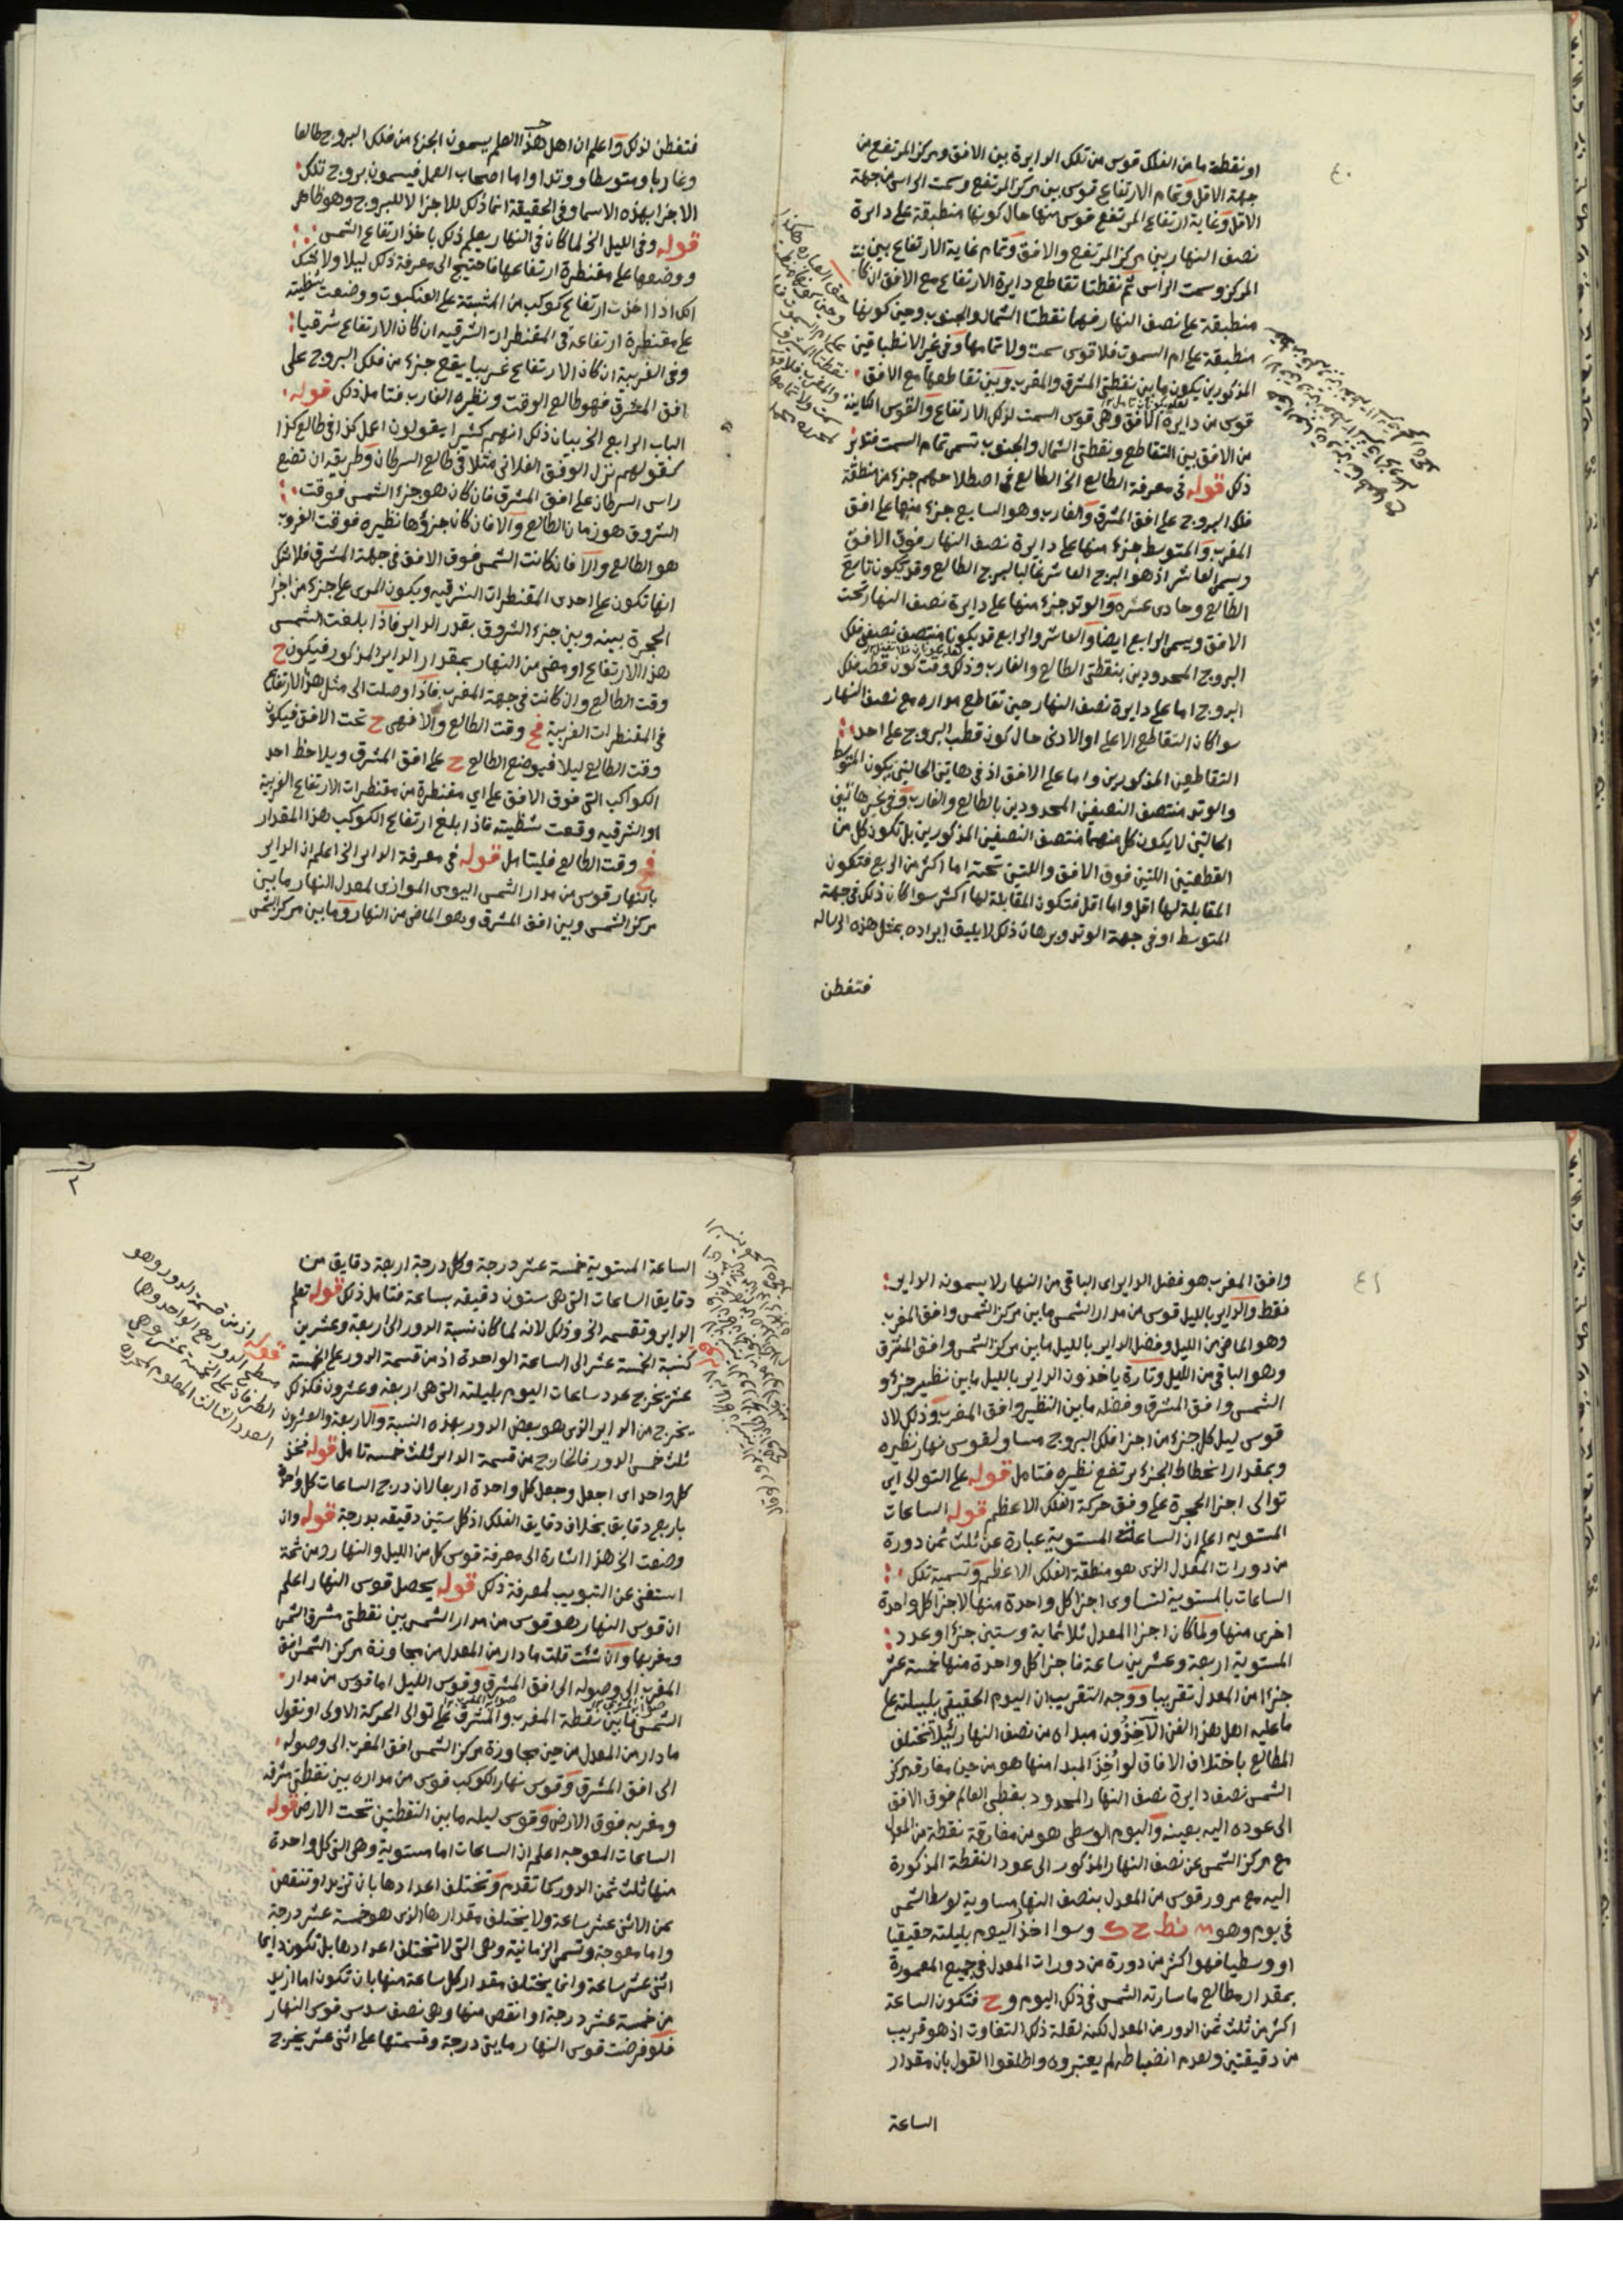 ٤٠
او نقطة ما من الفلك قوس من تلك الدايرة بين الافق ومركز المرتفع من
جهة الاقل وتمام الارتفاع قوس بين مركز المرتفع وسمت الراس من جهة
الاقل وغاية ارتفاع المرتفع قوس منها حال كونها منطبقة على دايرة
نصف النهار بين مركز المرتفع والافق وتمام غاية الارتفاع بين
المركز وسمت الراس ثم نقطتا تقاطع دايرة الارتفاع مع الافق ان كا
منطبقة على نصف النهار فهما نقطتا الشمال والجنوب وحين كونها
منطبقة على ام السموت فلا قوس سمت ولا تمامها وفي غير الانطباقين
المذكورين يكون ما بين نقطتي المشرق والمغرب وبين تقاطعها مع الافق
قوس من دايرة الافق وهي قوس السمت لذلك الارتفاع والقوس الكاينة
من الافق بين التقاطع ونقطتي الشمال والجنوب تسمى تمام السمت فتدبر
ذلك قوله في معرفة الطالع الخ الطالع في اصطلاحهم جزء من منطقة
فلك البروج على افق المشرق والغارب وهو السابع جزء منها على افق
المغرب والمتوسط جزء منها على دايرة نصف النهار فوق الافق
ويسمى العاشر اذ هو البرج العاشر غالبا لبرج الطالع وقد يكون تاسع
الطالع وحادي عشره والوتد جزء منها على دايرة نصف النهار تحت
الافق ويسمى الرابع ايضا والعاشر والرابع قد يكونا منتصف نصفي فلك
البروج المحدودين بنقطتي الطالع والغارب وذلك وقت كون قطب فلك
البروج اما على دايرة نصف النهار حين تقاطع مداره مع نصف النهار
سوا كان التقاطع الاعلى او الادنى حال كون قطب البروج على احد
التقاطعين المذكورين واما على الافق اذ في هاتين الحالتين يكون المتوسط
والوتد منتصف النصفين المحدودين بالطالع والغارب وفي غير هاتين
الحالتين لا يكون كل منهما منتصف النصفين المذكورين بل تكون كل من
القطعتين اللتين فوق الافق واللتين تحته اما اكثر من الربع فتكون
المقابلة لها اقل واما اقل فتكون المقابلة لها اكثر سوا كان ذلك في جهة
المتوسط او في جهة الوتد وبرهان ذلك لا يليق ايراده بمثل هذه الرساله
فتفطن
فتفطن لذلك واعلم ان اهل هذا العلم يسمون الجزء من فلك البروج طالعا
وغاربا ومتوسطا ووتدا واما اصحاب العمل فيسمون بروج تلك
الاجزا بهذه الاسما وفي الحقيقة انما ذلك للاجزا لا للبروج وهو ظاهر
قوله وفي الليل الخ لما كان في النهار يعلم ذلك باخذ ارتفاع الشمس
ووضعها على مقنطرة ارتفاعها فاحتيج الى معرفة ذلك ليلا ولا شك
انك اذا اخذت ارتفاع كوكب من المثبتة على العنكبوت ووضعت شظيته
على مقنطرة ارتفاعه في المقنطرات الشرقيه ان كان الارتفاع شرقيا
وفي الغربية ان كان الارتفاع غربيا يقع جزء من فلك البروج على
افق المشرق فهو طالع الوقت ونظيره الغارب فتامل ذلك قوله
الباب الرابع الخ بيان ذلك انهم كثيرا يقولون اعل كذا في طالع كذا
كقولهم نزل الوفق الفلاني مثلا في طالع السرطان وطريقه ان تضع
راس السرطان على افق المشرق فان كان هو جزء الشمس فوقت
الشروق هو زمان الطالع والا فان كان جزؤها نظيره فوقت الغروب
هو الطالع والا فان كانت الشمس فوق الافق في جهة المشرق فلا شك
انها تكون على احدى المقنطرات الشرقيه ويكون المرى على جزء من اجزا
الحجرة بينه وبين جزء الشروق بقدر الداير فاذا بلغت الشمس
هذا الارتفاع او مضى من النهار بمقدار الداير المذكور فيكون ح
وقت الطالع وان كانت في جهة المغرب فاذا وصلت الى مثل هذا الارتفاع
في المقنطرات الغربية فح وقت الطالع والا فهي ح تحت الافق فيكون
وقت الطالع ليلا فيوضع الطالع ح على افق المشرق ويلاحظ احد
الكواكب التي فوق الافق على اي مقنطرة من مقنطرات الارتفاع الغربية
او الشرقيه وقعت شظيته فاذا بلغ ارتفاع الكوكب هذا المقدار
فح وقت الطالع فليتامل قوله في معرفة الداير الخ اعلم ان الداير
بالنهار قوس من مدار الشمس اليومي الموازي لمعدل النهار ما بين
مركز الشمس وبين افق المشرق وهو الماضي من النهار وما بين مركز الشمس
٤١
وافق المغرب هو فضل الداير اى الباقى من النهار لا يسمونه الداير
فقط والداير بالليل قوس من مدار الشمس ما بين مركز الشمس وافق المغرب
وهو الماضي من الليل وفضل الداير بالليل ما بين مركز الشمس وافق المشرق
وهو الباقي من الليل وتارة ياخذون الداير بالليل ما بين نظير جزء و
الشمس وافق المشرق وفضله ما بين النظير وافق المغرب وذلك لان
قوس ليل كل جزء من اجزا فلك البروج مساو لقوس نهار نظيره
وبمقدار انحطاط الجزء يرتفع نظيره فتامل قوله على التوالى اي
توالى اجزا الحجرة على وفق حركة الفلك الاعظم قوله الساعات
المستويه اعلم ان الساعة المستوية عبارة عن ثلث ثمن دورة
من دورات المعدل الذى هو منطقة الفلك الاعظم وتسمية تلك
الساعات بالمستوية لتساوى اجزا كل واحدة منها لاجزا كل واحدة
اخرى منها ولما كان اجزا المعدل ثلاثماية وستين جزءا وعدد
المستوية اربعة وعشرين ساعة فاجزا كل واحدة منها خمسة عشر
جزءا من المعدل تقريبا ووجه التقريب ان اليوم الحقيقي بليلته على
ما عليه اهل هذا الفن الآخذون مبداه من نصف النهار لئلا تختلف
المطالع باختلاف الافاق لو اُخذ المبدا منها هو من حين مفارقة مركز
الشمس نصف دايرة نصف النهار المحدود بقطبى العالم فوق الافق
الى عوده اليه بعينه واليوم الوسطى هو من مفارقة نقطة من المعدل
مع مركز الشمس عن نصف النهار المذكور الى عود النقطة المذكورة
اليه مع مرور قوس من المعدل بنصف النهار مساوية لوسط الشمس
في يوم وهو نط ح ك وسوا اخذ اليوم بليلته حقيقيا
او وسطيا فهو اكثر من دورة من دورات المعدل في جميع المعمورة
بمقدار مطالع ما سارته الشمس في ذلك اليوم و ح فتكون الساعة
اكثر من ثلث ثمن الدور من المعدل لكنه لقلة ذلك التفاوت اذ هو قريب
من دقيقتين ولعدم انضباطه لم يعتبروه واطلقوا القول بان مقدار
الساعة
الساعة المستوية خمسة عشر درجة وكل درجة اربعة دقايق من
دقايق الساعات التي هي ستون دقيقه بساعة فتامل ذلك قوله تعلم
الداير وتقسمه الخ وذلك لانه لما كان نسبة الدور الى اربعة وعشرين
كنسبة الخمسة عشر الى الساعة الواحدة اذ من قسمة الدور على الخمسة
عشر يخرج عدد ساعات اليوم بليلته التى هى اربعة وعشرون فكذلك
يخرج من الداير الذى هو بعض الدور بهذه النسبة والاربعة والعشرون
ثلث خمس الدور فالخارج من قسمة الداير ثلث خمسه تامل قوله فخذ
كل واحد اى اجعل وجعل كل واحدة اربعا لان درج الساعات كل واحدة
باربع دقايق بخلاف دقايق الفلك اذ كل ستين دقيقه بدرجة قوله وان
وضعت الخ هذا اشارة الى معرفة قوسى كل من الليل والنهار ومن ثمة
استغنى عن التبويب لمعرفة ذلك قوله يحصل قوس النهار اعلم
ان قوس النهار هو قوس من مدار الشمس بين نقطتى مشرق الشمس
ومغربها وان شئت قلت ما دار من المعدل من مجاوزة مركز الشمس افق
المغرب الى وصوله الى افق المشرق وقوس الليل اما قوس من مدار
الشمس ما بين نقطة المغرب والمشرق على توالى الحركة الاولى او نقول
ما دار من المعدل من حين مجاوزة مركز الشمس افق المغرب الى وصوله
الى افق المشرق وقوس نهار الكوكب قوس من مداره بين نقطتى مشرقه
ومغربه فوق الارض وقوس ليله ما بين النقطتين تحت الارض قوله
الساعات المعوجه اعلم ان الساعات اما مستوية وهى التى كل واحدة
منها ثلث ثمن الدور كما تقدم وتختلف اعدادها بان تزيد او تنقص
عن الاثنى عشر ساعة ولا يختلف مقدارها الذى هو خمسة عشر درجة
واما معوجة وتسمى الزمانية وهى التى لا تختلف اعدادها بل تكون دايما
اثنى عشر ساعة وانما يختلف مقدار كل ساعة منها بان تكون اما ازيد
من خمسة عشر درجة او انقص منها وهى نصف سدس قوس النهار
فلو فرضت قوس النهار مايتى درجة وقسمتها على اثنى عشر يخرج
قوله اذ من قسمة الدور وهو
مسطح الدور مع الواحد وهما
الطرفان على الخمسة عشر وهي
العدد الثالث المعلوم